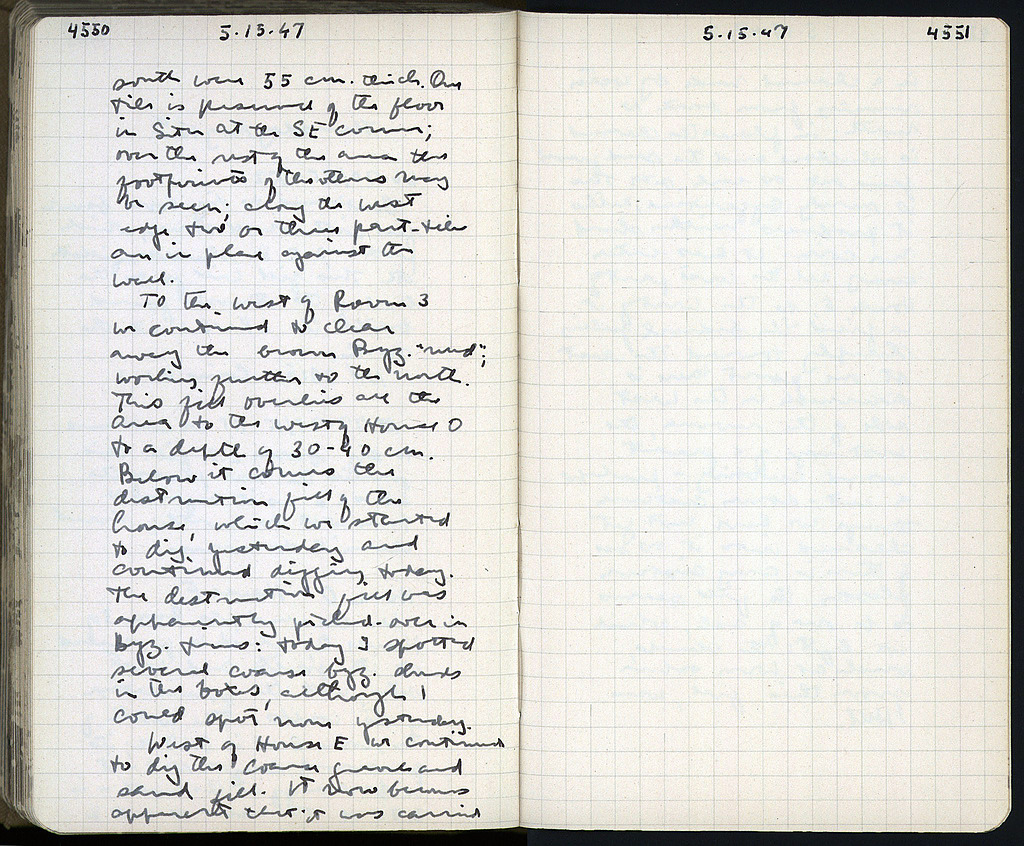 4550 5.15.47
south were 55 cm. thick. One
tile is preserved of the floor
in situ at the SE corner;
over the rest of the area the
footprints of the others may
be seen; along the west
edge two or three part-tiles
are in place against the
wall.
To the west of Room 3
we continued to clear
away the brown Byz. "mud";
working further to the north.
This fill overlies all the
area to the west of House O
to a depth of 30-40 cm.
Below it comes the
destruction fill of the
house, which we started
to dig yesterday and
continued digging today.
The destruction fill was
apparently picked-over in
Byz. times: today I spotted
several coarse byz. sherds
in the boxes, although I
could spot none yesterday.
West of House E we continued
to dig the coarse gravel and
sand fill. It now becomes
apparent that it was carried
5.15.47 4551